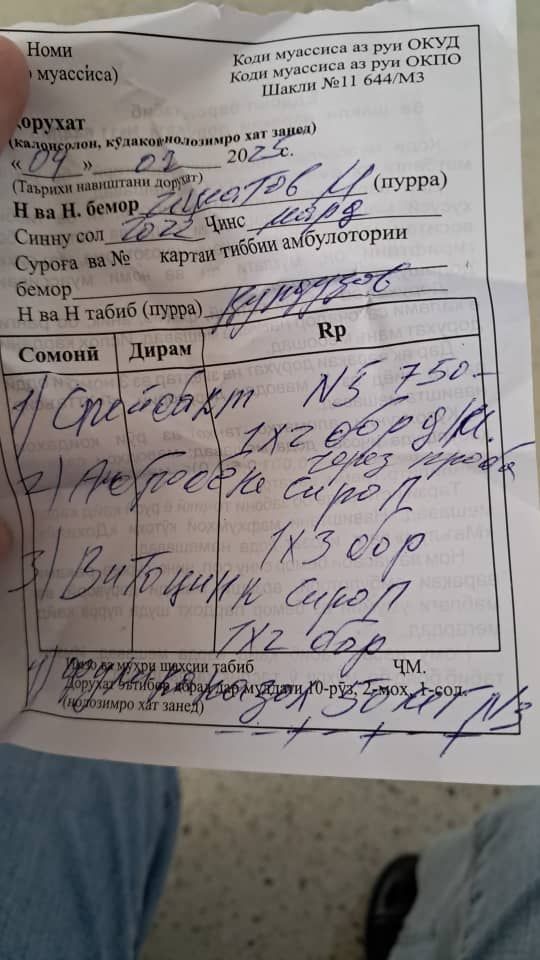 Номи
Коди муассиса аз руи ОКУД
о муассиса)
Коди муассиса аз руи ОКПО
Шакли №11 644/МЗ
дорухат
(калонсолон, кӯдакон нолозимро хат занед)
«04» 02 2025с.
(Таърихи навиштани дорухат)
Н ва Н. бемор М (пурра)
Синну сол 2022 Ҷинс мард
Суроға ва № картаи тиббии амбулотории
бемор
Н ва Н табиб (пурра)
Сомонӣ Дирам Rp
1) N5 750-
1х2 обо д/м.
через проба
2) Амбробене сироп
1х3 бор
3) Витоцинк сироп
1х2 бор
Имзо ва муҳри шахсии табиб ҶМ.
Дорухат эътибор дорад дар муддати 10-рӯз, 2-мох, 1-сол.
(нолозимро хат занед)
4) 50 мг N3